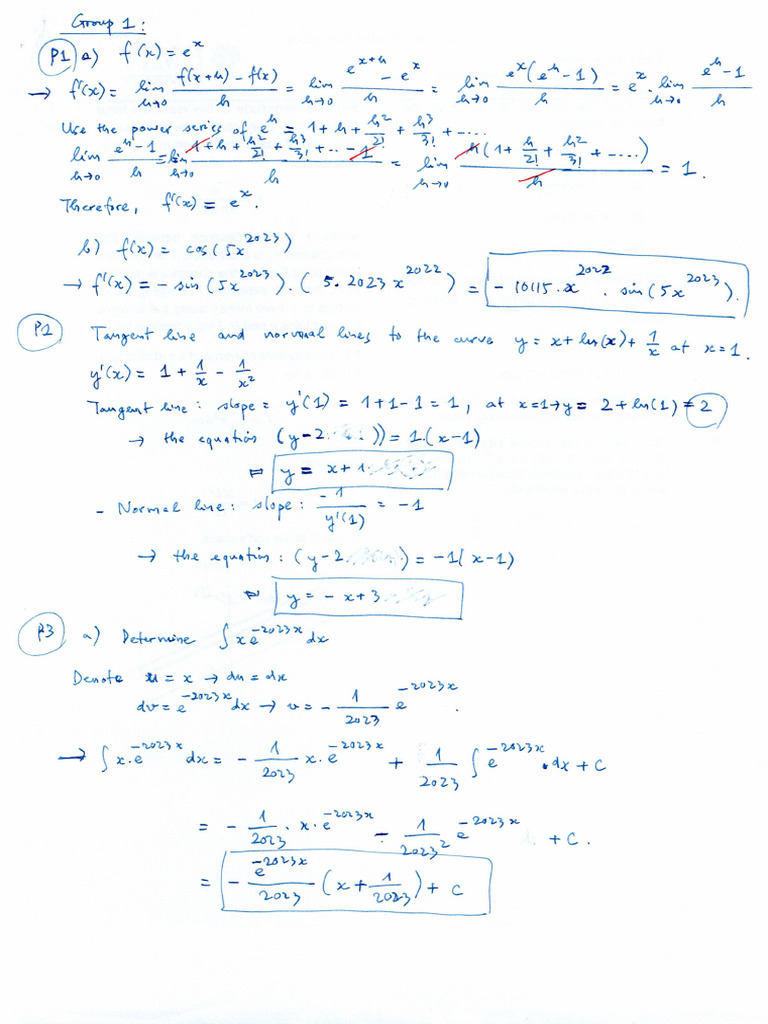 Group 1 :
P1 a) f(x) = e^x
→ f'(x) = lim_{h→0} (f(x+h) - f(x))/h = lim_{h→0} (e^{x+h} - e^x)/h = lim_{h→0} e^x(e^h - 1)/h = e^x · lim_{h→0} (e^h - 1)/h
Use the power series of e^h = 1 + h + h^2/2! + h^3/3! + ....
lim_{h→0} (e^h - 1)/h = lim_{h→0} (1 + h + h^2/2! + h^3/3! + ... - 1)/h = lim_{h→0} h(1 + h/2! + h^2/3! + ....)/h = 1.
Therefore, f'(x) = e^x.
b) f(x) = cos(5x^{2023})
→ f'(x) = - sin(5x^{2023}) . (5. 2023 x^{2022}) = - 10115. x^{2022} . sin(5x^{2023}).
P2 Tangent line and normal lines to the curve y = x + ln(x) + 1/x at x = 1.
y'(x) = 1 + 1/x - 1/x^2
Tangent line : slope = y'(1) = 1 + 1 - 1 = 1, at x = 1 → y = 2 + ln(1) = 2
→ the equation (y - 2) = 1.(x - 1)
⇔ y = x + 1
- Normal line : slope : -1/y'(1) = -1
→ the equation : (y - 2) = -1(x - 1)
⇔ y = - x + 3
P3 a) Determine ∫ x e^{-2023x} dx
Denote u = x → du = dx
dv = e^{-2023x} dx → v = - 1/2023 e^{-2023x}.
→ ∫ x. e^{-2023x} dx = - 1/2023 x. e^{-2023x} + 1/2023 ∫ e^{-2023x} . dx + C
= - 1/2023 . x. e^{-2023x} - 1/2023^2 e^{-2023x} + C.
= - e^{-2023x}/2023 (x + 1/2023) + C